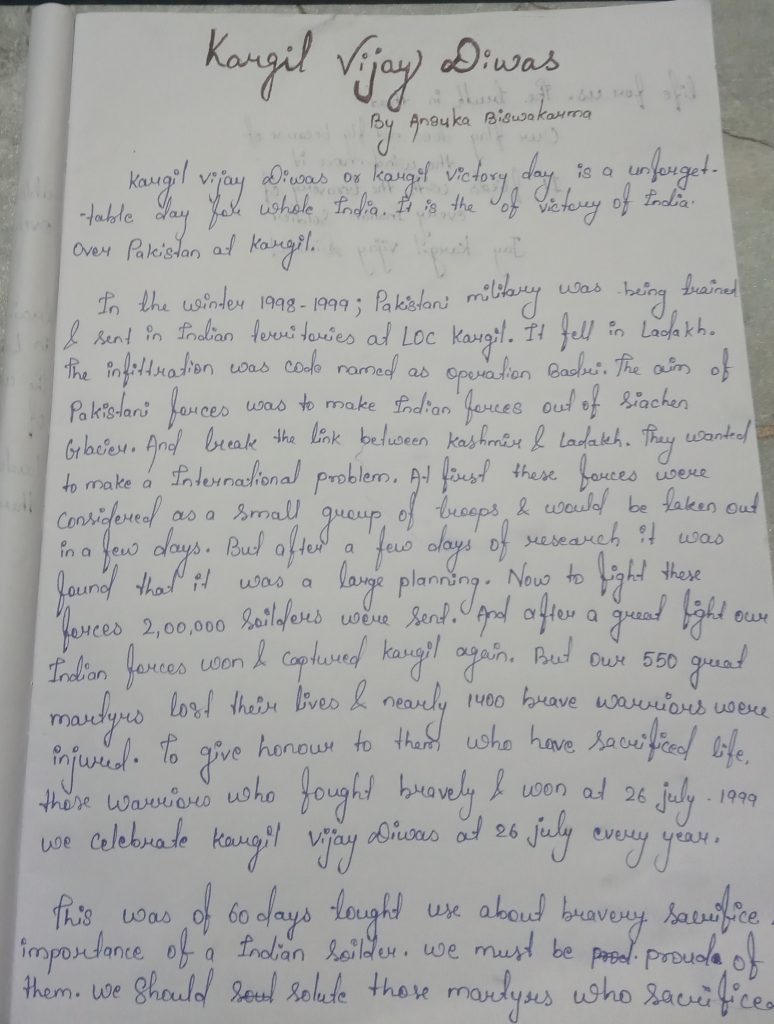 Kargil Vijay Diwas
By Anouka Biswakarma
Kargil vijay Diwas or Kargil victory day is a unforget-
-table day for whole India. It is the of victory of India.
over Pakistan at Kargil.
In the winter 1998-1999; Pakistani military was being trained
& sent in Indian territories at LOC Kargil. It fell in Ladakh.
The infiltration was code named as operation Badri. The aim of
Pakistani forces was to make Indian forces out of siachen
Glacier. And break the link between Kashmir & Ladakh. They wanted
to make a International problem. At first these forces were
considered as a small group of troops & would be taken out
in a few days. But after a few days of research it was
found that it was a large planning. Now to fight these
forces 2,00,000 soilders were sent. And after a great fight our
Indian forces won & captured Kargil again. But our 550 great
martyrs lost their lives & nearly 1400 brave warriors were
injured. To give honour to them who have sacrificed life,
those warriors who fought bravely & won at 26 july . 1999
we celebrate Kargil Vijay Diwas at 26 july every year.
This was of 60 days tought use about bravery sacrifice.
importance of a Indian soilder. we must be proud of
them. we should solute those martyrs who sacrificed